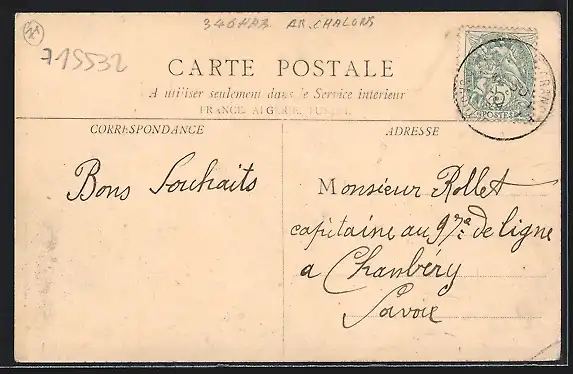 346HAB AR. CHALONS
715532
CARTE POSTALE
A utiliser seulement dans le Service intérieur
FRANCE, ALGÉRIE, TUNISIE
CORRESPONDANCE
ADRESSE
Bons Souhaits
Monsieur Rollet
capitaine au 97e de ligne
a Chambéry
Savoie
5
POSTES